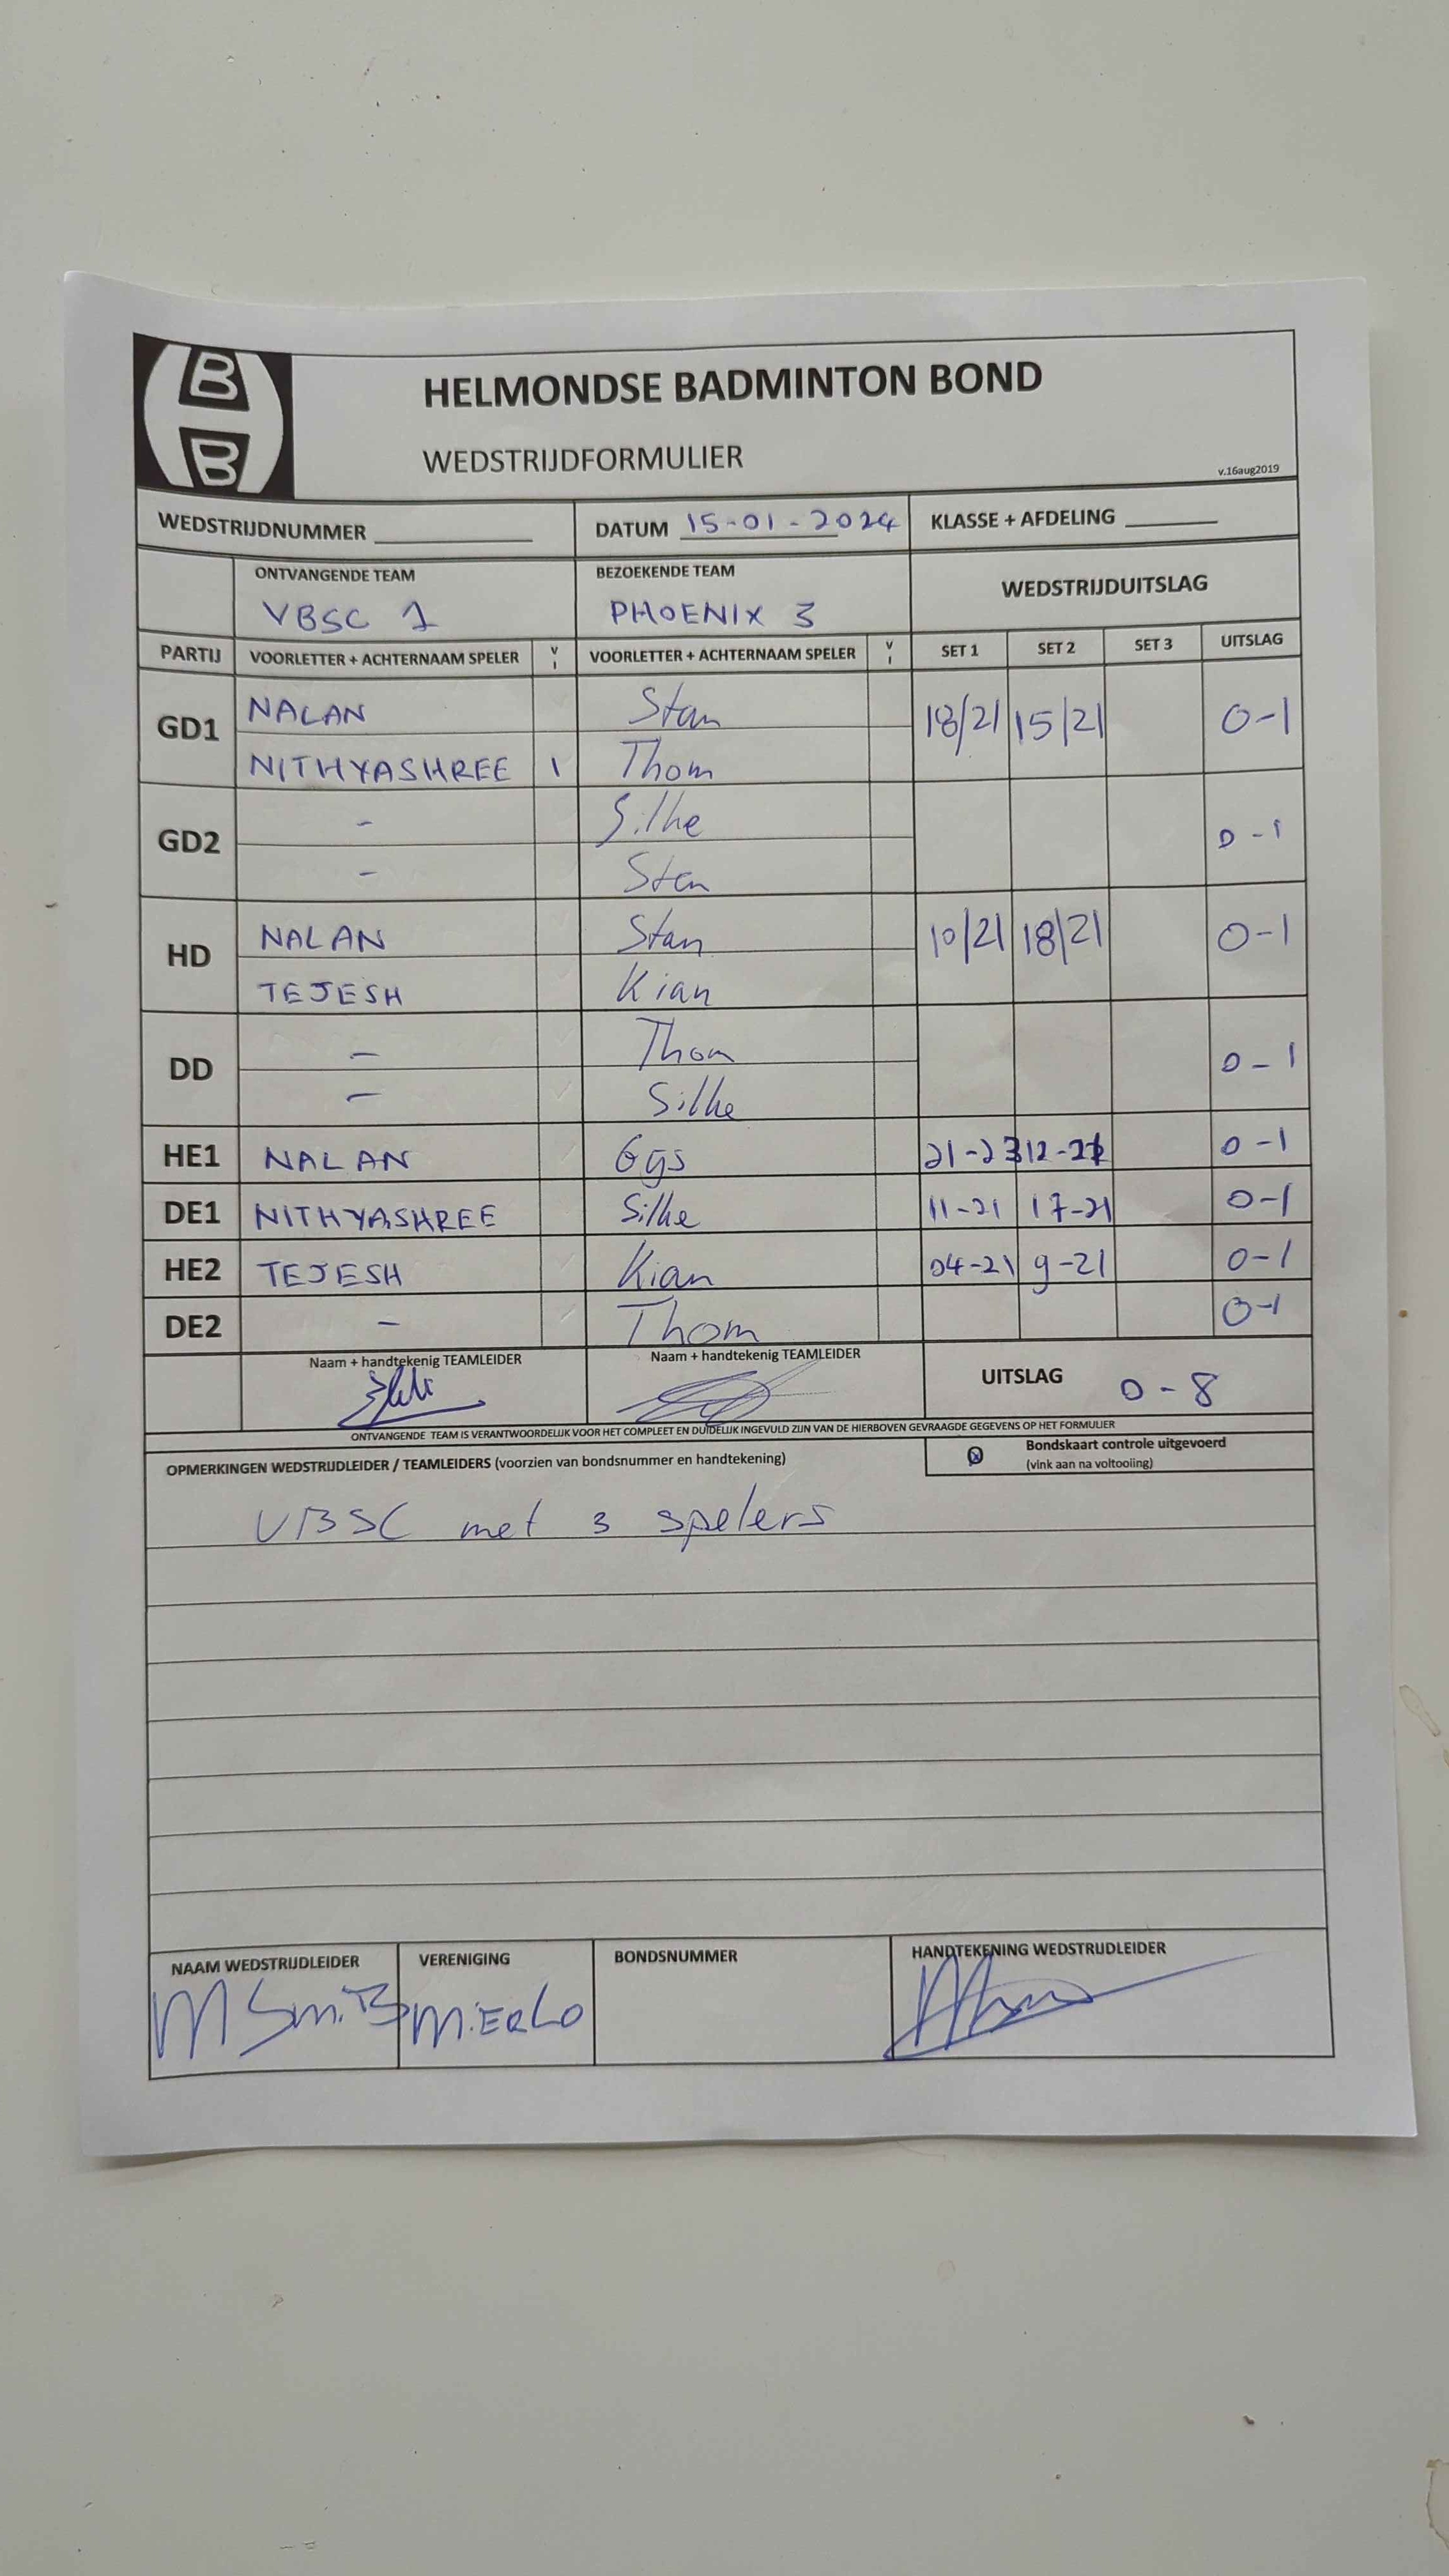 B
B
HELMONDSE BADMINTON BOND
WEDSTRIJDFORMULIER
v.16aug2019
WEDSTRIJDNUMMER ________ DATUM 15-01-2024 KLASSE + AFDELING ________
ONTVANGENDE TEAM BEZOEKENDE TEAM WEDSTRIJDUITSLAG
VBSC 1 PHOENIX 3
PARTIJ VOORLETTER + ACHTERNAAM SPELER V I VOORLETTER + ACHTERNAAM SPELER V I SET 1 SET 2 SET 3 UITSLAG
GD1 NALAN Stan 18/21 15/21 0-1
NITHYASHREE I Thom
GD2 - Silke 0-1
- Stan
HD NALAN Stan 10/21 18/21 0-1
TEJESH Kian
DD - Thom 0-1
- Silke
HE1 NALAN Gijs 21-23 12-21 0-1
DE1 NITHYASHREE Silke 11-21 17-21 0-1
HE2 TEJESH Kian 04-21 9-21 0-1
DE2 - Thom 0-1
Naam + handtekenig TEAMLEIDER Naam + handtekenig TEAMLEIDER UITSLAG 0-8
ONTVANGENDE TEAM IS VERANTWOORDELIJK VOOR HET COMPLEET EN DUIDELIJK INGEVULD ZIJN VAN DE HIERBOVEN GEVRAAGDE GEGEVENS OP HET FORMULIER
OPMERKINGEN WEDSTRIJDLEIDER / TEAMLEIDERS (voorzien van bondsnummer en handtekening) Bondskaart controle uitgevoerd
(vink aan na voltooiing)
VBSC met 3 spelers
NAAM WEDSTRIJDLEIDER VERENIGING BONDSNUMMER HANDTEKENING WEDSTRIJDLEIDER
M SmiTS MiERLO